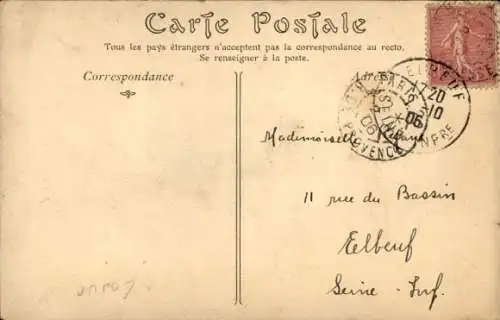 Carte Postale
Tous les pays étrangers n'acceptent pas la correspondance au recto.
Se renseigner à la poste.
Correspondance
Adresse
PARIS
ELBEUF
20
10
06
PROVENCE
06
Mademoiselle
11 rue du Bassin
Elbeuf
Seine-Inf.